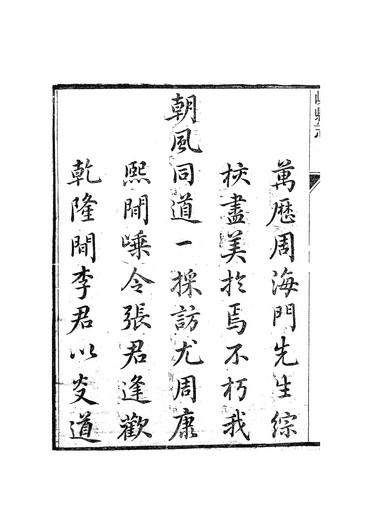 萬歷周海門先生綜
核盡美於焉不朽我
朝風同道一採訪尤周康
熙間嵊令張君逢歡
乾隆間李君以炎道